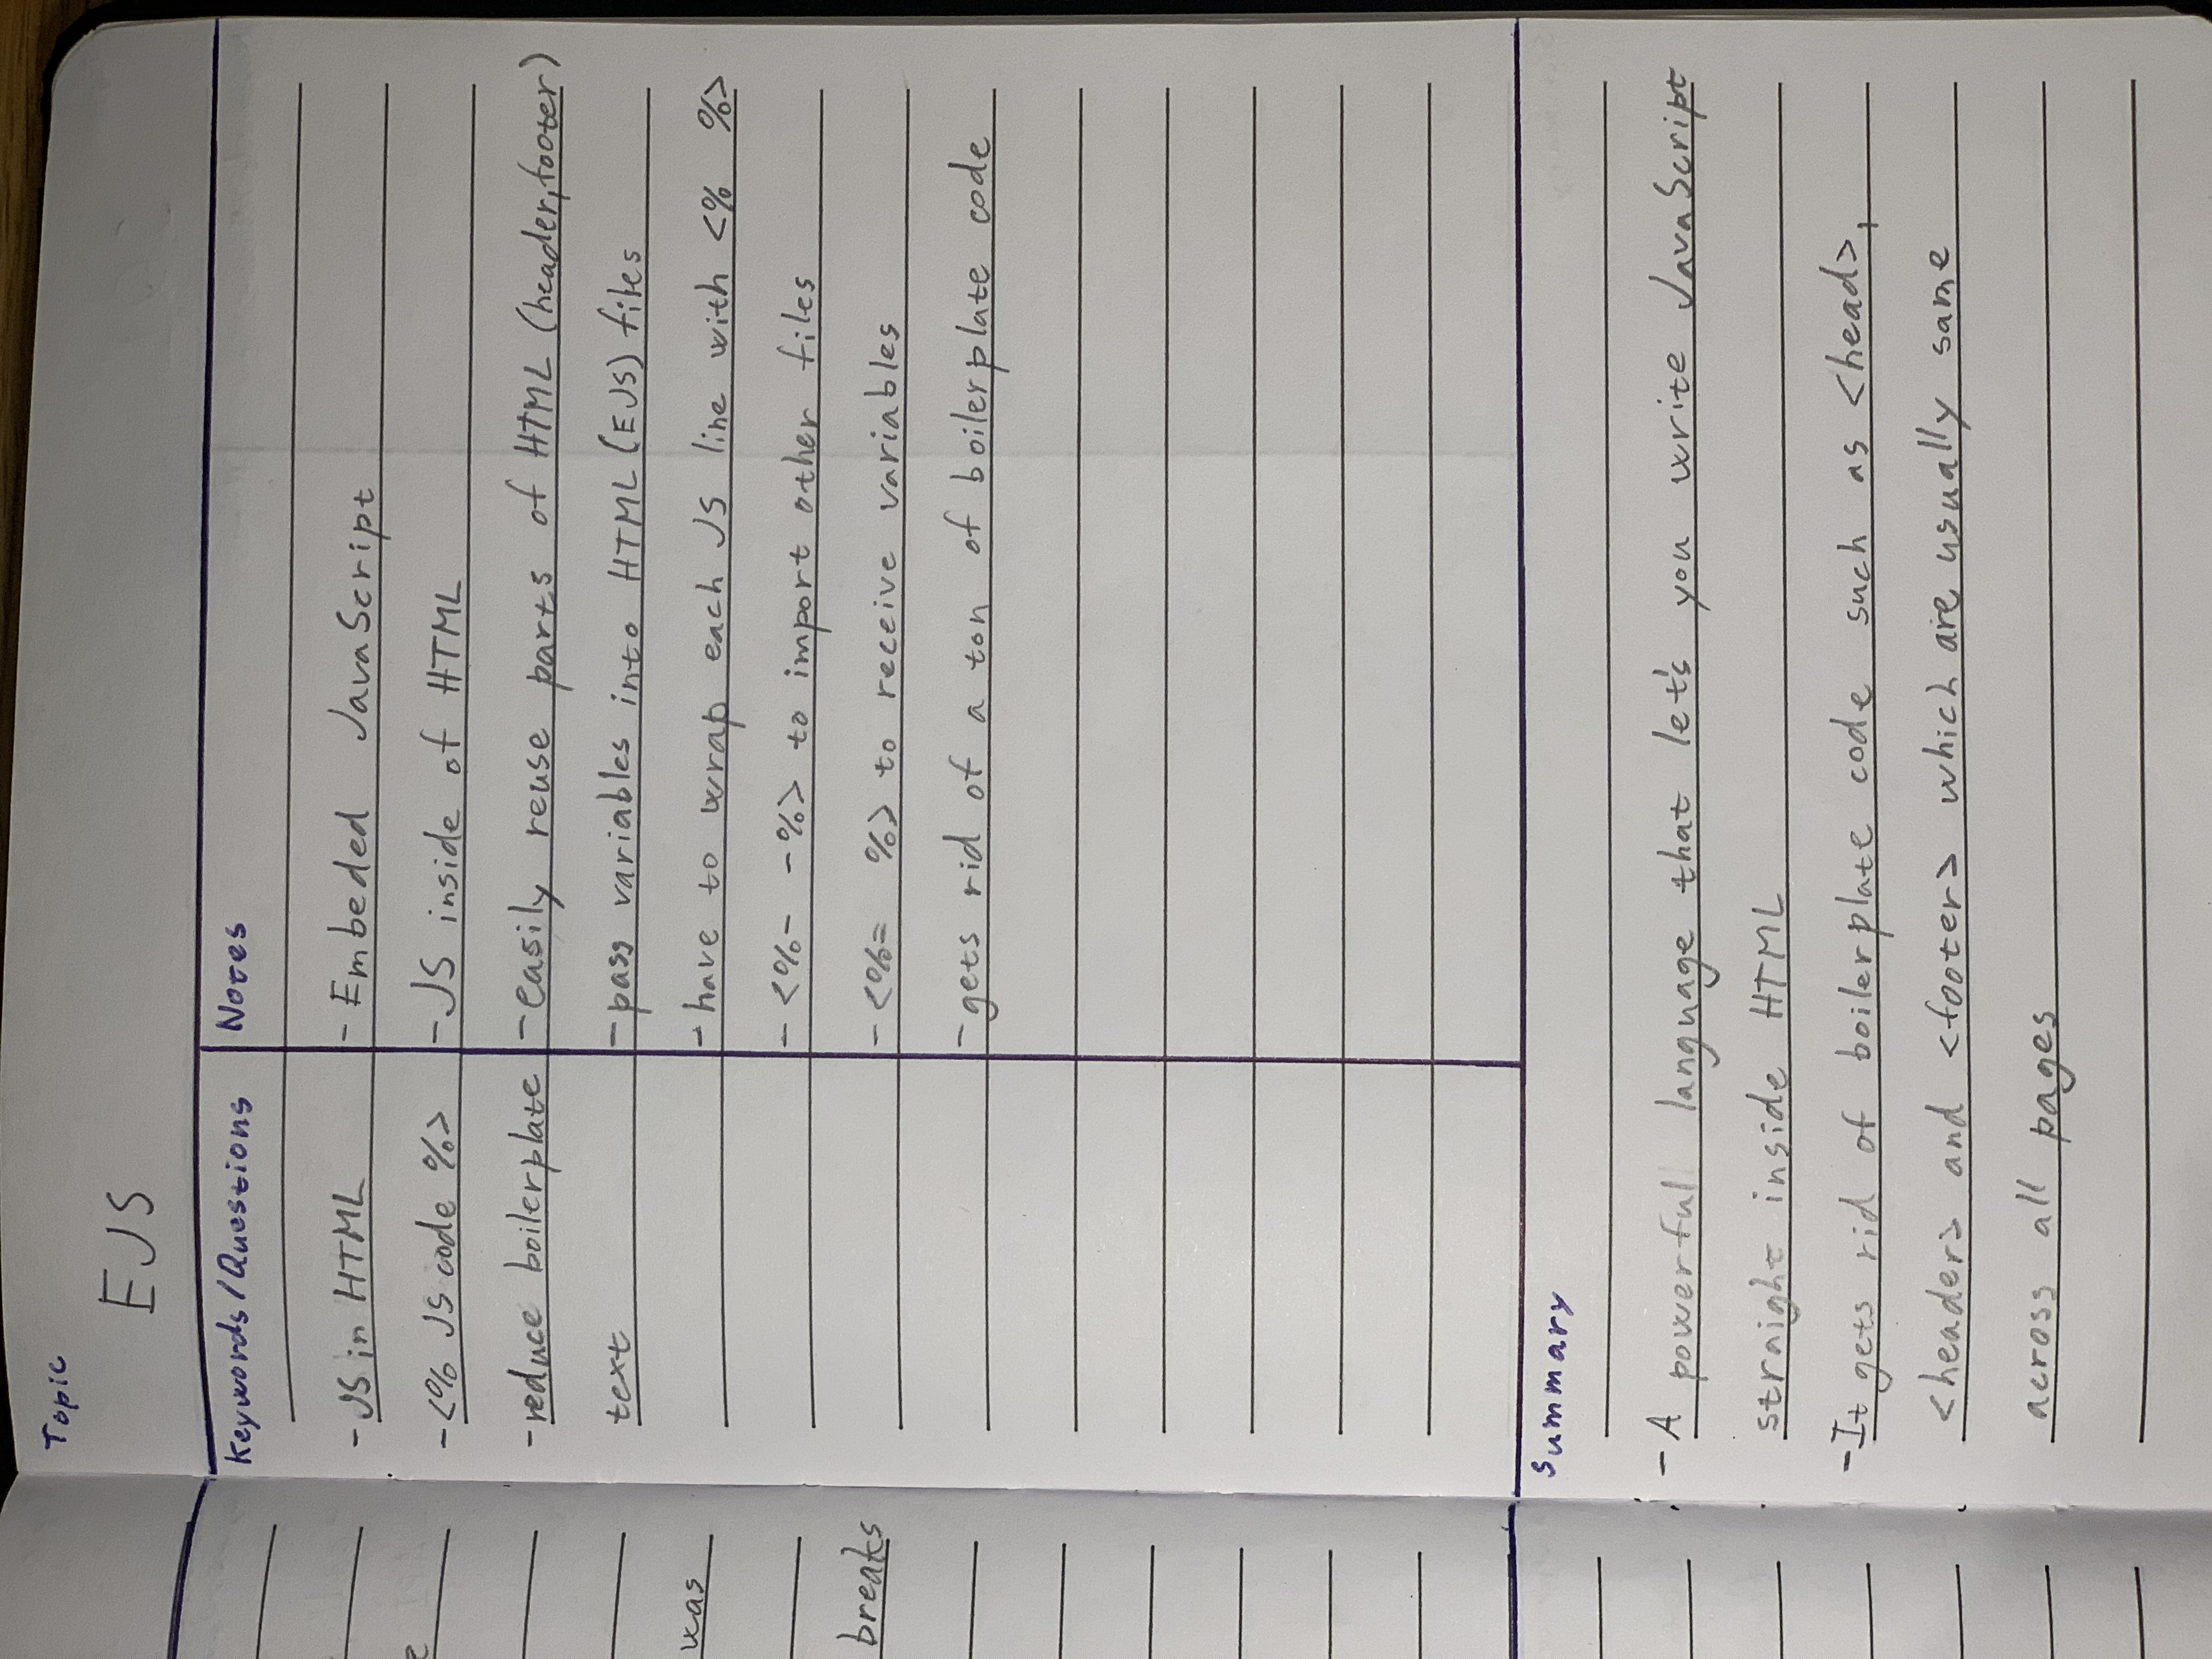 Topic
EJS
Keywords/Questions
- JS in HTML
- <% JS code %>
- reduce boilerplate
text
Notes
- Embeded JavaScript
- JS inside of HTML
- easily reuse parts of HTML (header,footer)
- pass variables into HTML (EJS) files
- have to wrap each JS line with <% %>
- <%- -%> to import other files
- <%= %> to receive variables
- gets rid of a ton of boilerplate code
Summary
- A powerful language that let's you write JavaScript
straight inside HTML
- It gets rid of boilerplate code such as <head>,
<header> and <footer> which are usually same
across all pages
was
breaks